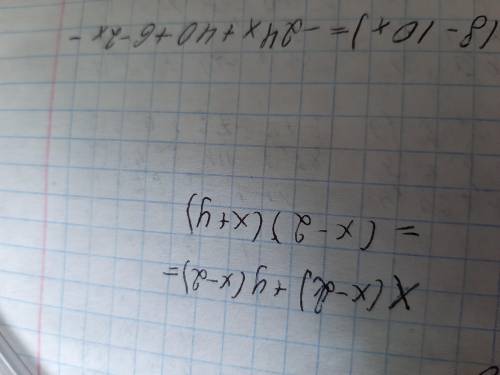 X(x-2)+y(x-2)=
=(x-2)(x+y)
(8-10x)=-24x+40+6-2x-